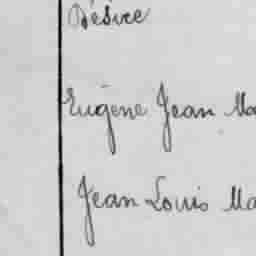 Désiré
Eugène Jean Ma
Jean Louis Ma